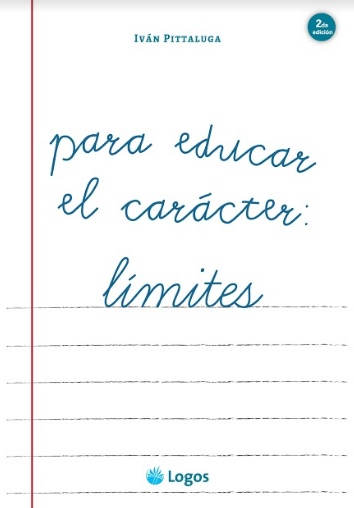 IVÁN PITTALUGA
2da
edición
para educar
el carácter:
límites
Logos